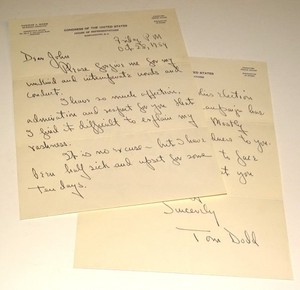 CONGRESS OF THE UNITED STATES
HOUSE OF REPRESENTATIVES
WASHINGTON, D.C.
Friday P.M.
Oct 25, 1954
Dear John
Please forgive me for my
unkind and intemperate words and
conduct.
I have so much affection,
admiration and respect for you that
I find it difficult to explain my
rashness.
It is no excuse - but I have
been half sick and upset for some
ten days.
this election
campaign has
Mostly
to you.
to face
at you
Sincerely
Tom Dodd